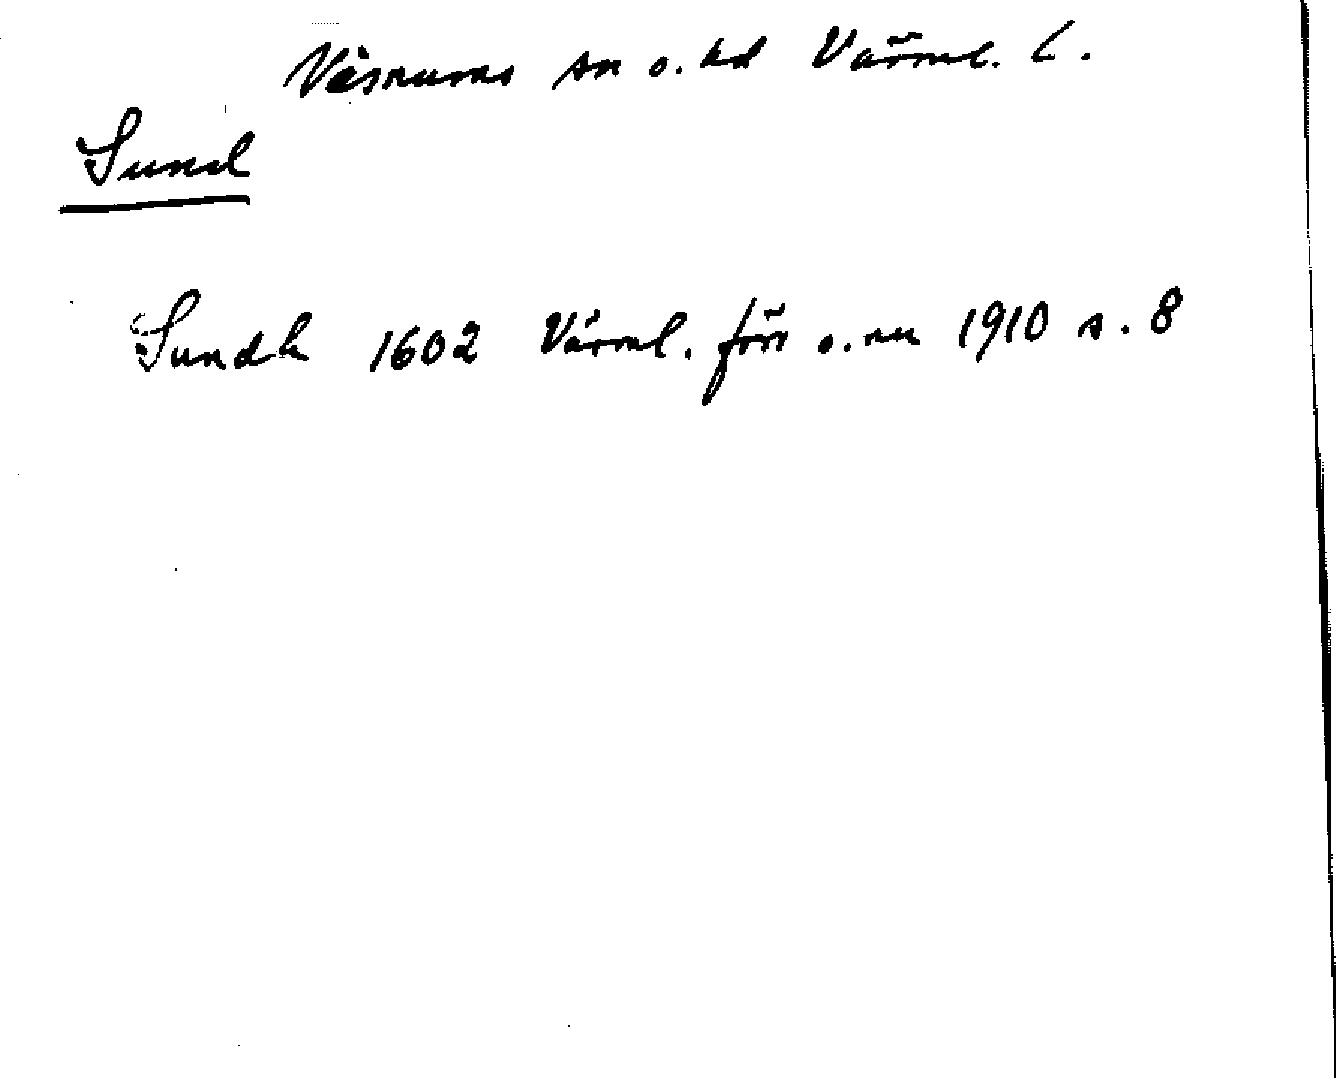 Väsnums sn o. hd Värml. l.
Sund
Sundh 1602 Värml. förr o. nu 1910 s. 8